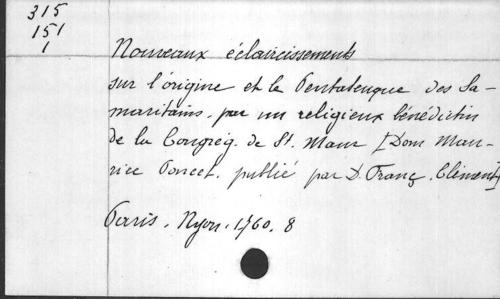 315
151
1
Nouveaux éclaircissements
sur l'origine et le Pentateuque des Sa-
maritains, par un religieux bénédictin
de la Congrég. de St. Maur [Dom Mau-
rice Poncet, publié par D. Franç. Clément]
Paris, Nyon, 1760. 8